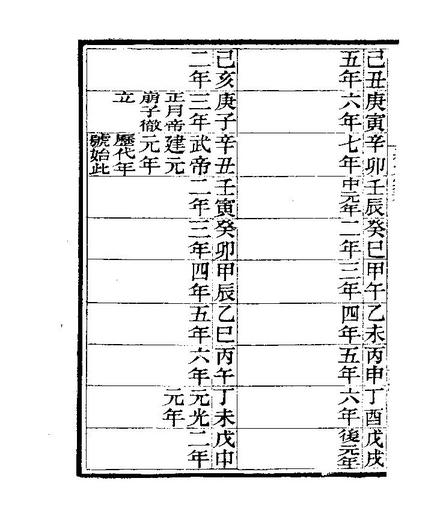 己丑庚寅辛卯壬辰癸巳甲午乙未丙申丁酉戊戌
五年六年七年中元年二年三年四年五年六年後元年
己亥庚子辛丑壬寅癸卯甲辰乙巳丙午丁未戊申
二年三年武帝二年三年四年五年六年元光二年
正月帝建元元年
崩子徹元年
立歷代年
號始此